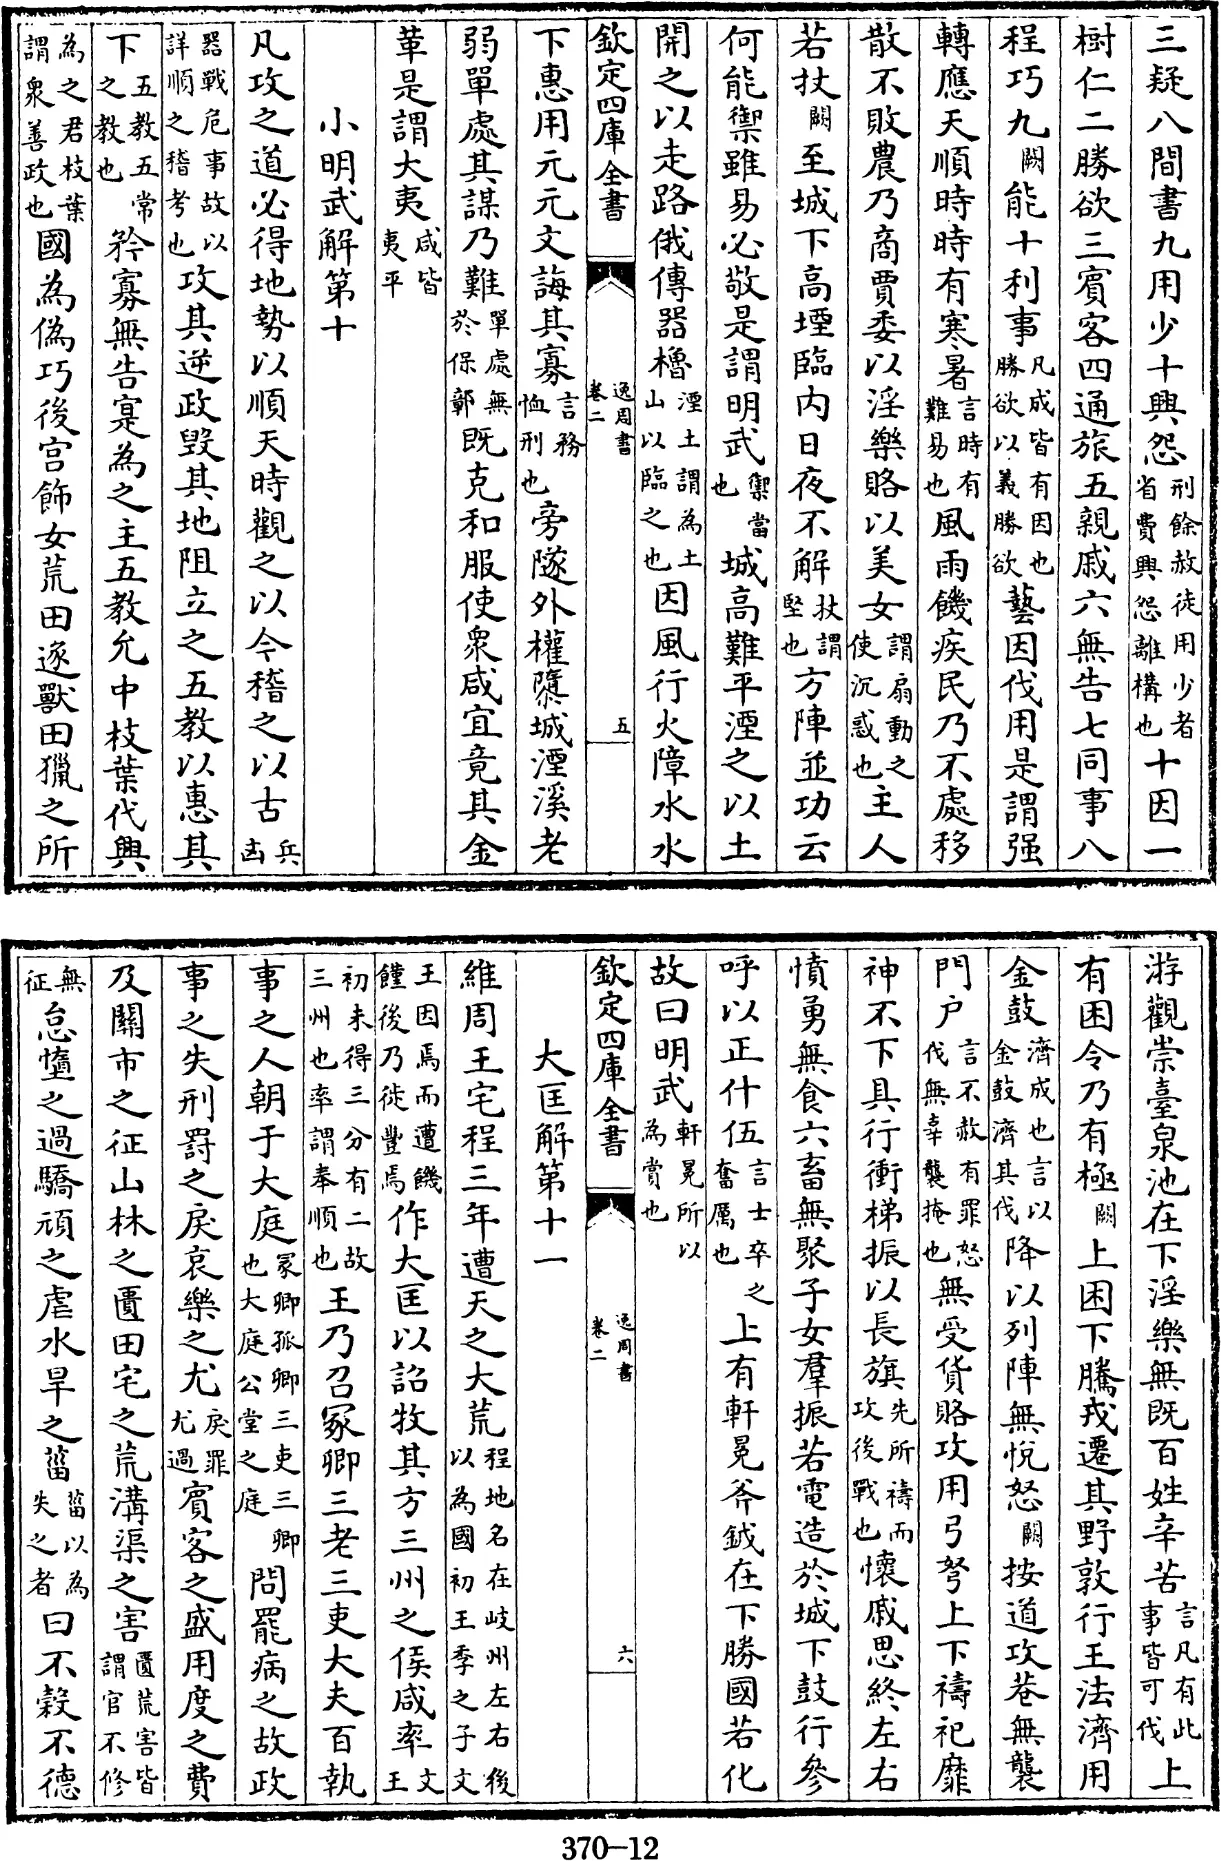 三疑八間書九用少十興怨刑餘赦徒用少者省費興怨離構也十因一
樹仁二勝欲三賓客四通旅五親戚六無告七同事八
程巧九闕能十利事凡成皆有因也勝欲以義勝欲藝因伐用是謂强
轉應天順時時有寒暑言時有難易也風雨饑疾民乃不處移
散不敗農乃商賈委以淫樂賂以美女謂扇動之使沉惑也主人
若杖闕至城下高堙臨内日夜不解杖謂堅也方陣並功云
何能禦雖易必敬是謂明武禦當也城高難平湮之以土
開之以走路俄傳器櫓湮土謂為土山以臨之也因風行火障水水
欽定四庫全書 逸周書卷二 五
下惠用元元文誨其寡言務恤刑也旁隧外權隳城湮溪老
弱單處其謀乃難單處無於保鄣既克和服使衆咸宜竟其金
革是謂大夷咸皆夷平
小明武解第十
凡攻之道必得地勢以順天時觀之以今稽之以古兵凶
器戰危事故以詳順之稽考也攻其逆政毀其地阻立之五教以惠其
下五教五常之教也矜寡無告寔為之主五教允中枝葉代興
為之君枝葉謂衆善政也國為偽巧後宫飾女荒田逐獸田獵之所
游觀崇臺泉池在下淫樂無既百姓辛苦言凡有此事皆可伐上
有困令乃有極闕上困下騰戎遷其野敦行王法濟用
金鼓濟成也言以金鼓濟其伐降以列陣無悦怒闕按道攻巷無襲
門户言不赦有罪怒伐無辜襲掩也無受貨賂攻用弓弩上下禱祀靡
神不下具行衝梯振以長旗先所禱而攻後戰也懷戚思終左右
憤勇無食六畜無聚子女羣振若電造於城下鼓行參
呼以正什伍言士卒之奮厲也上有軒冕斧鉞在下勝國若化
故曰明武軒冕所以為賞也
欽定四庫全書 逸周書卷二 六
大匡解第十一
維周王宅程三年遭天之大荒程地名在岐州左右後以為國初王季之子文
王因焉而遭饑饉後乃徙豐焉作大匡以詔牧其方三州之侯咸率文王
初未得三分有二故三州也率謂奉順也王乃召冢卿三老三吏大夫百執
事之人朝于大庭冢卿孤卿三吏三卿也大庭公堂之庭問罷病之故政
事之失刑罰之戾哀樂之尤戾罪尤過賓客之盛用度之費
及關市之征山林之匱田宅之荒溝渠之害匱荒害皆謂官不修
無征怠墮之過驕頑之虐水旱之菑菑以為失之者曰不穀不德
370-12